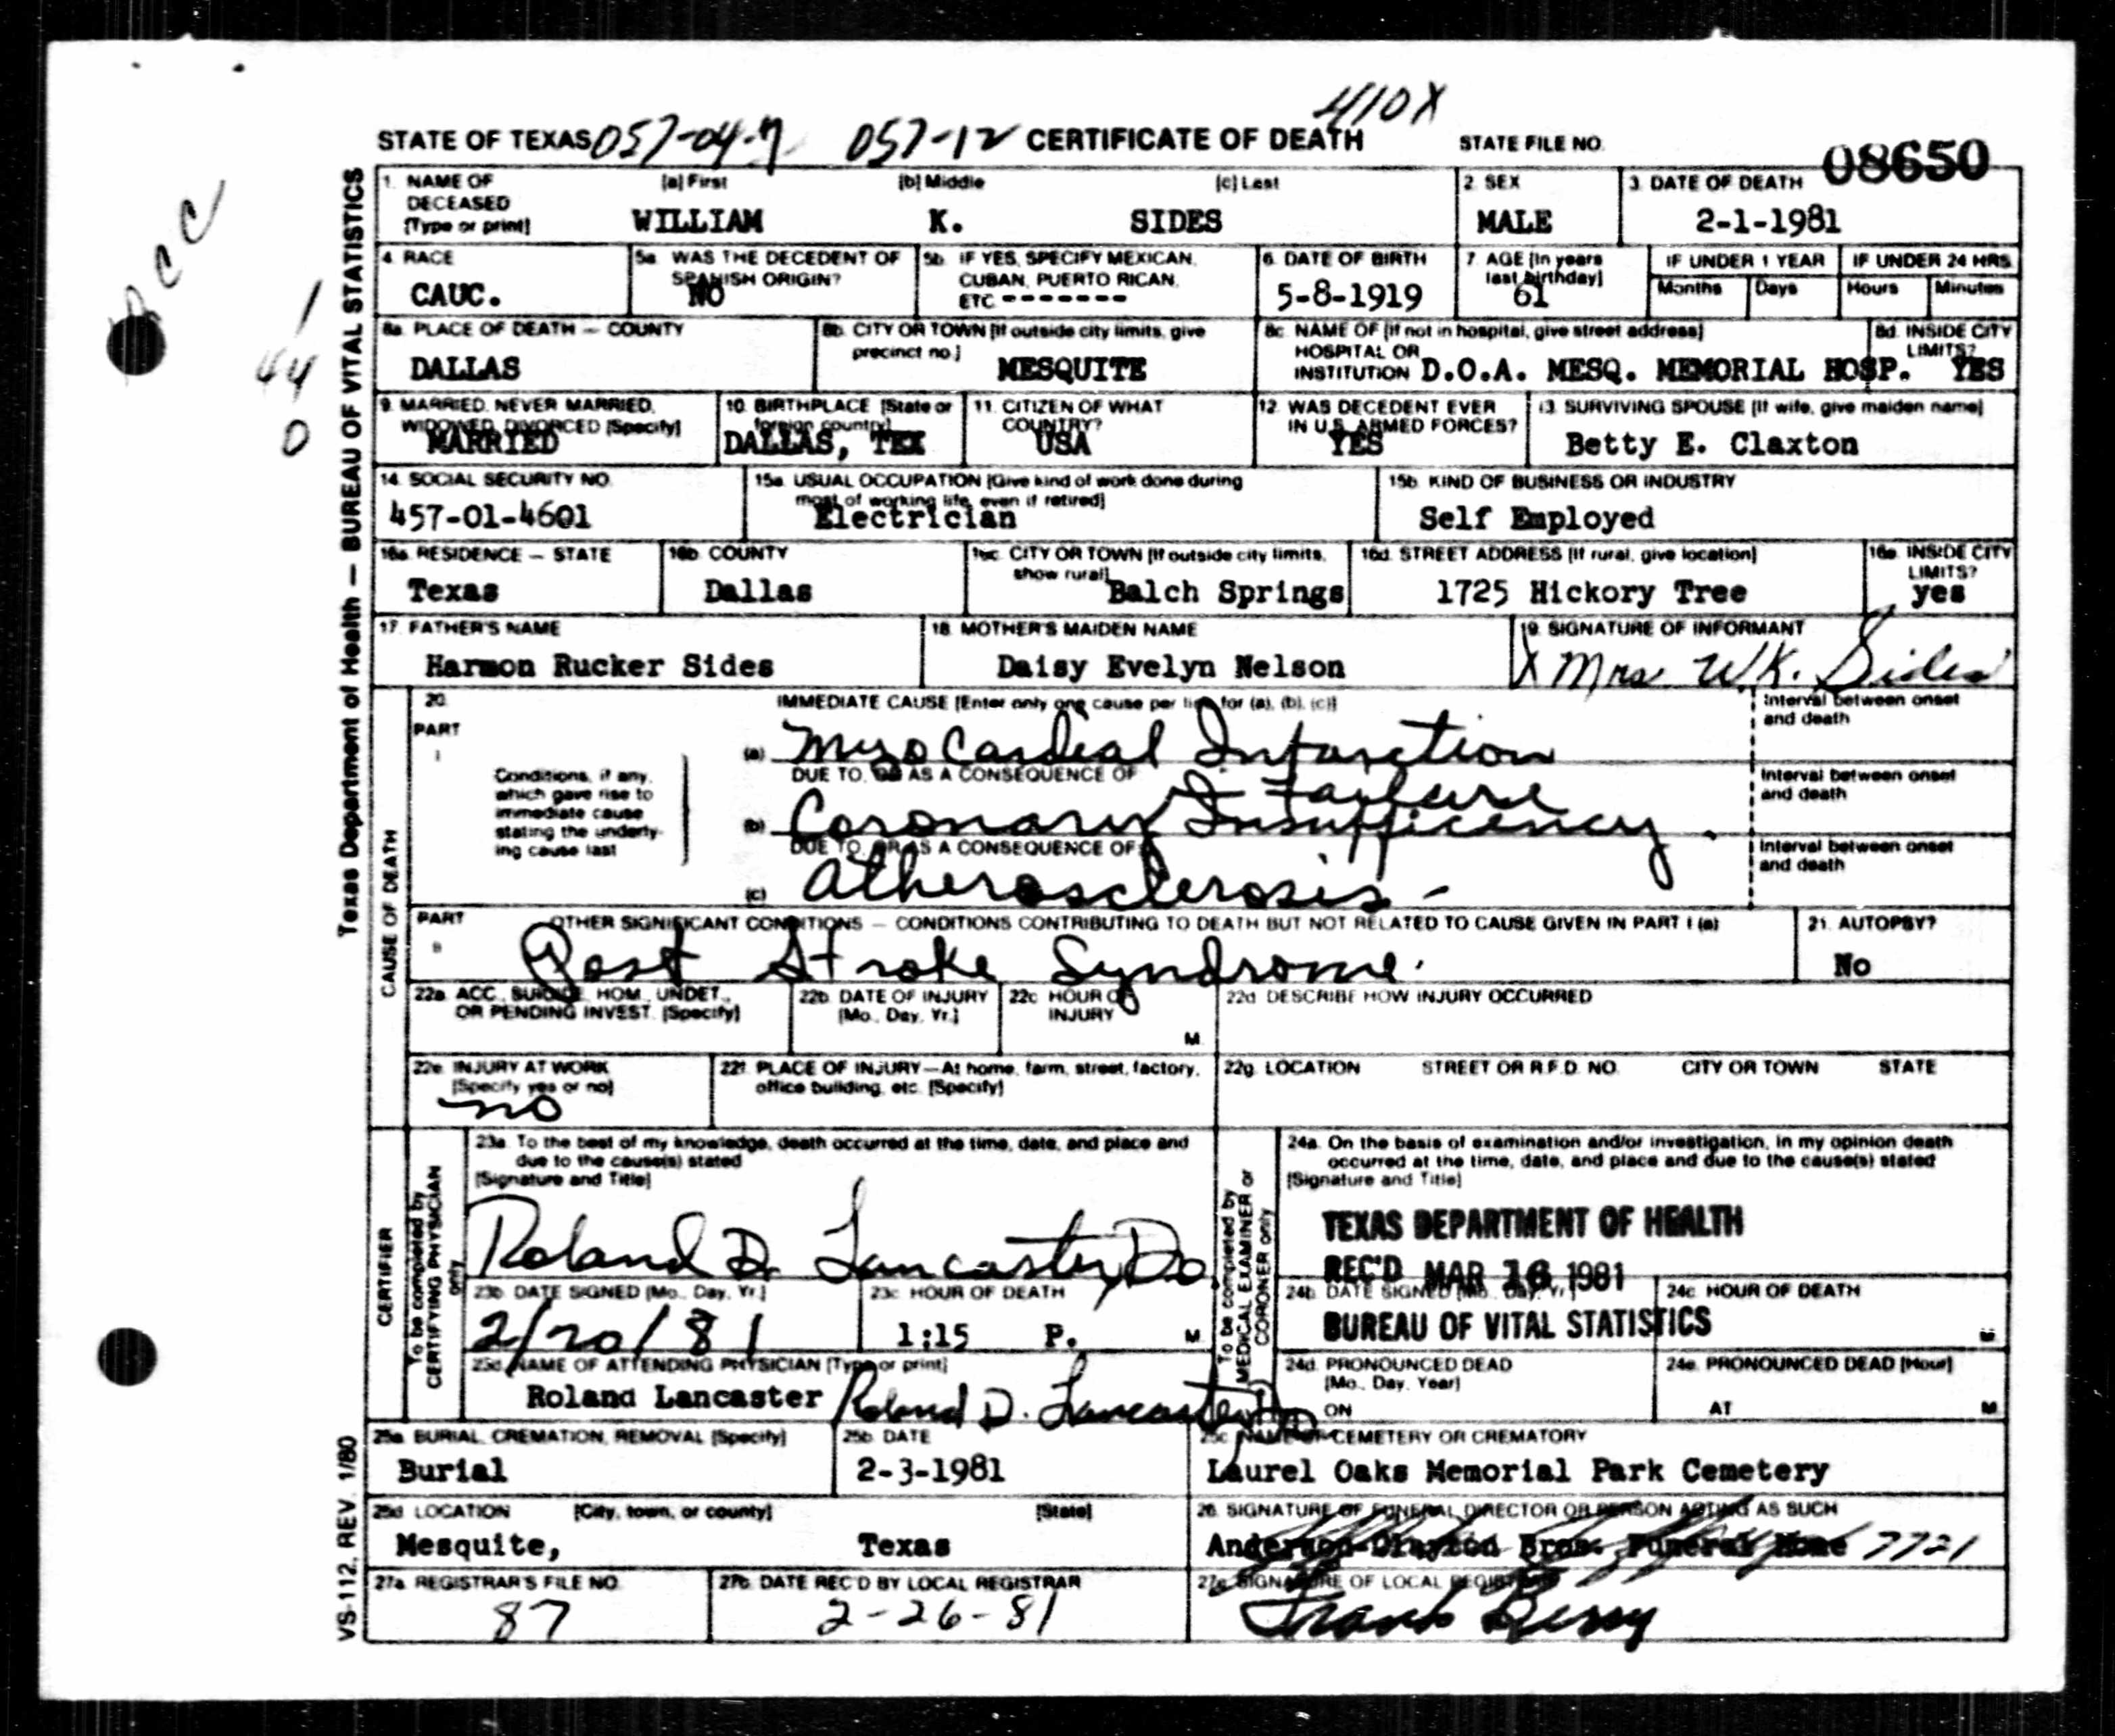 410X
STATE OF TEXAS 057-04-7 057-12 CERTIFICATE OF DEATH STATE FILE NO. 08650
Texas Department of Health — BUREAU OF VITAL STATISTICS
1. NAME OF DECEASED [Type or print] [a] First [b] Middle [c] Last 2. SEX 3. DATE OF DEATH
WILLIAM K. SIDES MALE 2-1-1981
4. RACE 5a. WAS THE DECEDENT OF SPANISH ORIGIN? 5b. IF YES, SPECIFY MEXICAN, CUBAN, PUERTO RICAN, ETC. 6. DATE OF BIRTH 7. AGE [In years last birthday] IF UNDER 1 YEAR IF UNDER 24 HRS.
Months Days Hours Minutes
CAUC. NO ------- 5-8-1919 61
8a. PLACE OF DEATH — COUNTY 8b. CITY OR TOWN [If outside city limits, give precinct no.] 8c. NAME OF [If not in hospital, give street address] HOSPITAL OR INSTITUTION 8d. INSIDE CITY LIMITS?
DALLAS MESQUITE D.O.A. MESQ. MEMORIAL HOSP. YES
44
0
9. MARRIED, NEVER MARRIED, WIDOWED, DIVORCED [Specify] 10. BIRTHPLACE [State or foreign country] 11. CITIZEN OF WHAT COUNTRY? 12. WAS DECEDENT EVER IN U.S. ARMED FORCES? 13. SURVIVING SPOUSE [If wife, give maiden name]
MARRIED DALLAS, TEX USA YES Betty E. Claxton
14. SOCIAL SECURITY NO. 15a. USUAL OCCUPATION [Give kind of work done during most of working life, even if retired] 15b. KIND OF BUSINESS OR INDUSTRY
457-01-4601 Electrician Self Employed
16a. RESIDENCE — STATE 16b. COUNTY 16c. CITY OR TOWN [If outside city limits, show rural] 16d. STREET ADDRESS [If rural, give location] 16e. INSIDE CITY LIMITS?
Texas Dallas Balch Springs 1725 Hickory Tree yes
17. FATHER'S NAME 18. MOTHER'S MAIDEN NAME 19. SIGNATURE OF INFORMANT
Harmon Rucker Sides Daisy Evelyn Nelson X Mrs W.K. Sides
CAUSE OF DEATH
20. PART I IMMEDIATE CAUSE [Enter only one cause per line for (a), (b), (c)] Interval between onset and death
(a) Myocardial Infarction
Conditions, if any, which gave rise to immediate cause stating the underlying cause last
DUE TO, OR AS A CONSEQUENCE OF Interval between onset and death
& Failure
(b) Coronary Insufficency
DUE TO, OR AS A CONSEQUENCE OF Interval between onset and death
(c) Atherosclerosis -
PART II OTHER SIGNIFICANT CONDITIONS — CONDITIONS CONTRIBUTING TO DEATH BUT NOT RELATED TO CAUSE GIVEN IN PART I (a) 21. AUTOPSY?
Post Stroke Syndrome. No
22a. ACC., SUICIDE, HOM., UNDET., OR PENDING INVEST. [Specify] 22b. DATE OF INJURY [Mo., Day, Yr.] 22c. HOUR OF INJURY M. 22d. DESCRIBE HOW INJURY OCCURRED
22e. INJURY AT WORK [Specify yes or no] 22f. PLACE OF INJURY—At home, farm, street, factory, office building, etc. [Specify] 22g. LOCATION STREET OR R.F.D. NO. CITY OR TOWN STATE
no
CERTIFIER
To be completed by CERTIFYING PHYSICIAN only
23a. To the best of my knowledge, death occurred at the time, date, and place and due to the cause(s) stated
[Signature and Title]
Roland D. Lancaster, Do
23b. DATE SIGNED [Mo., Day, Yr.] 23c. HOUR OF DEATH
2/20/81 1:15 P. M.
23d. NAME OF ATTENDING PHYSICIAN [Type or print]
Roland Lancaster Roland D. Lancaster
To be completed by MEDICAL EXAMINER or CORONER only
24a. On the basis of examination and/or investigation, in my opinion death occurred at the time, date, and place and due to the cause(s) stated
[Signature and Title]
TEXAS DEPARTMENT OF HEALTH
REC'D MAR 16 1981
24b. DATE SIGNED [Mo., Day, Yr.] 24c. HOUR OF DEATH
BUREAU OF VITAL STATISTICS M
24d. PRONOUNCED DEAD [Mo., Day, Year] 24e. PRONOUNCED DEAD [Hour]
ON AT M.
25a. BURIAL, CREMATION, REMOVAL [Specify] 25b. DATE 25c. NAME OF CEMETERY OR CREMATORY
Burial 2-3-1981 Laurel Oaks Memorial Park Cemetery
25d. LOCATION [City, town, or county] [State] 26. SIGNATURE OF FUNERAL DIRECTOR OR PERSON ACTING AS SUCH
Mesquite, Texas Anderson-Clayton Bros. Funeral Home 7721
27a. REGISTRAR'S FILE NO. 27b. DATE REC'D BY LOCAL REGISTRAR 27c. SIGNATURE OF LOCAL REGISTRAR
87 2-26-81 Frank Berry
VS-112, REV. 1/80